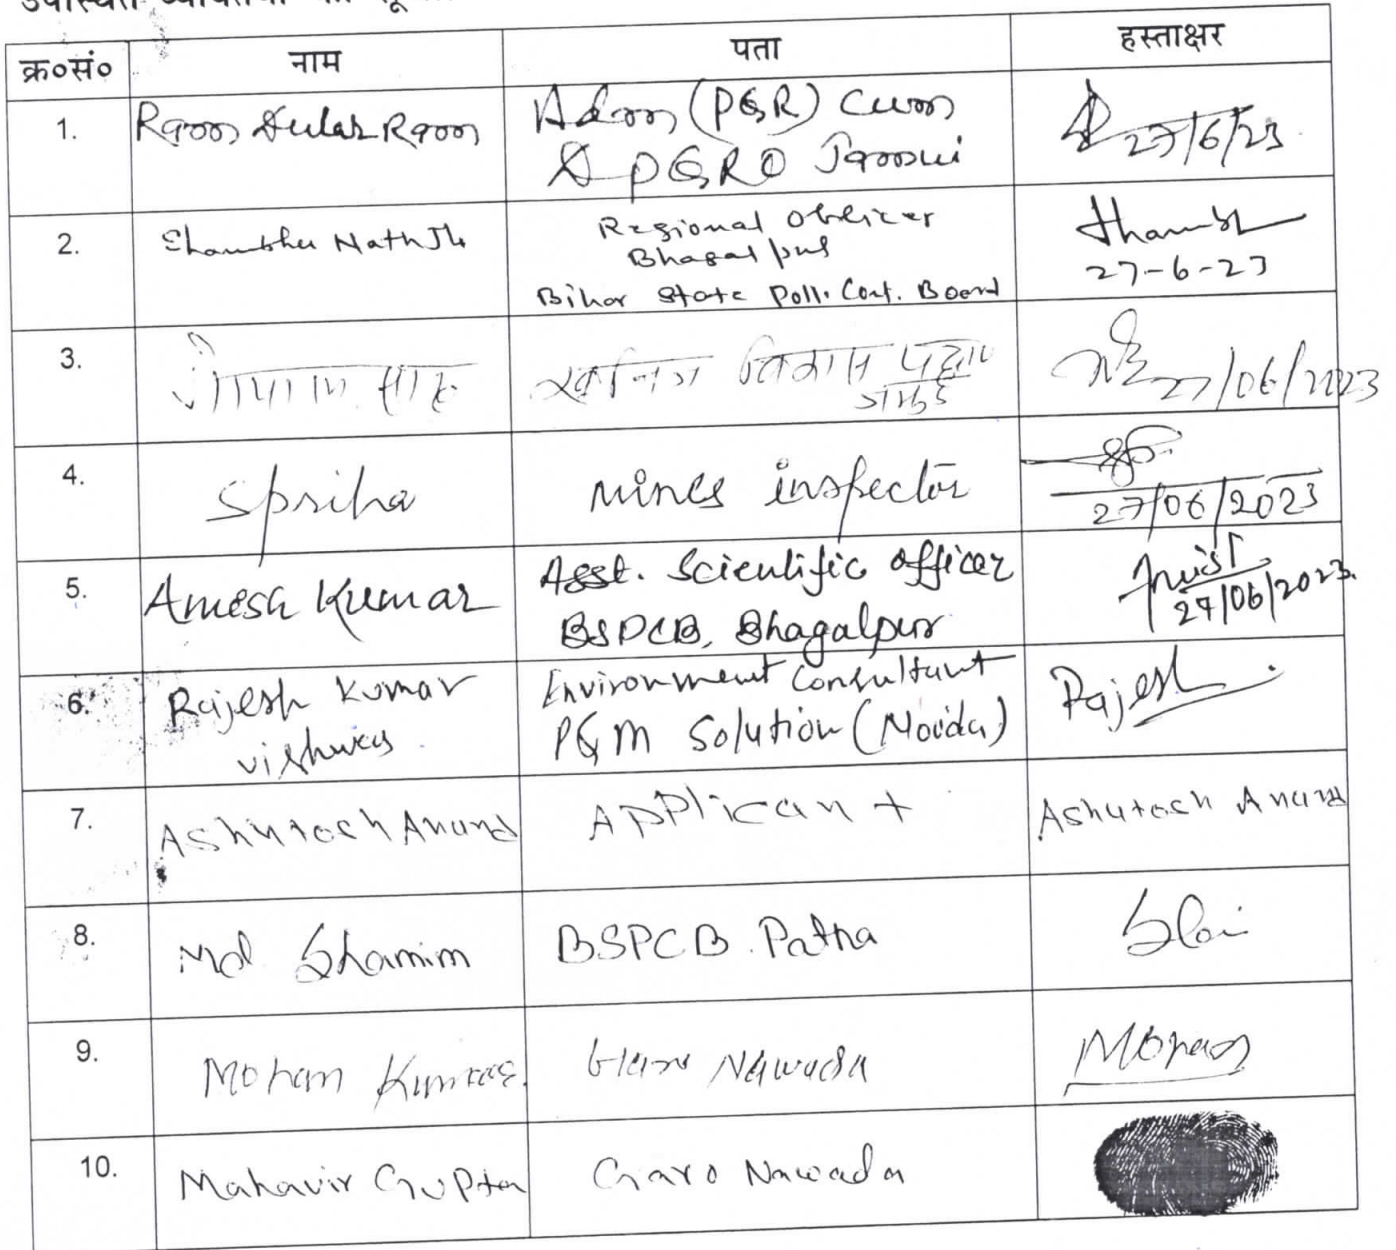 उपस्थित व्यक्तियों की
क्र०सं० नाम पता हस्ताक्षर
1. Ram Dular Ram ADM (PGR) Cum 27/6/23
DPGRO Jamui
2. Shambhu Nath Jha Regional Officer
Bhagalpur 27-6-23
Bihar State Poll. Cont. Board
3. गोपाल साह खनिज विकास पदा० 27/06/2023
जमुई
4. Spriha Mines inspector 27/06/2023
5. Amesh Kumar Asst. Scientific officer
BSPCB, Bhagalpur 27/06/2023.
6. Rajesh Kumar Environment Consultant Rajesh
vishwas P&M Solution (Noida)
7. Ashutosh Anand Applicant Ashutosh Anand
8. Md Shamim BSPCB. Patna
9. Mohan Kumar Nawada Mohan
10. Mahavir Gupta Garo Nawada